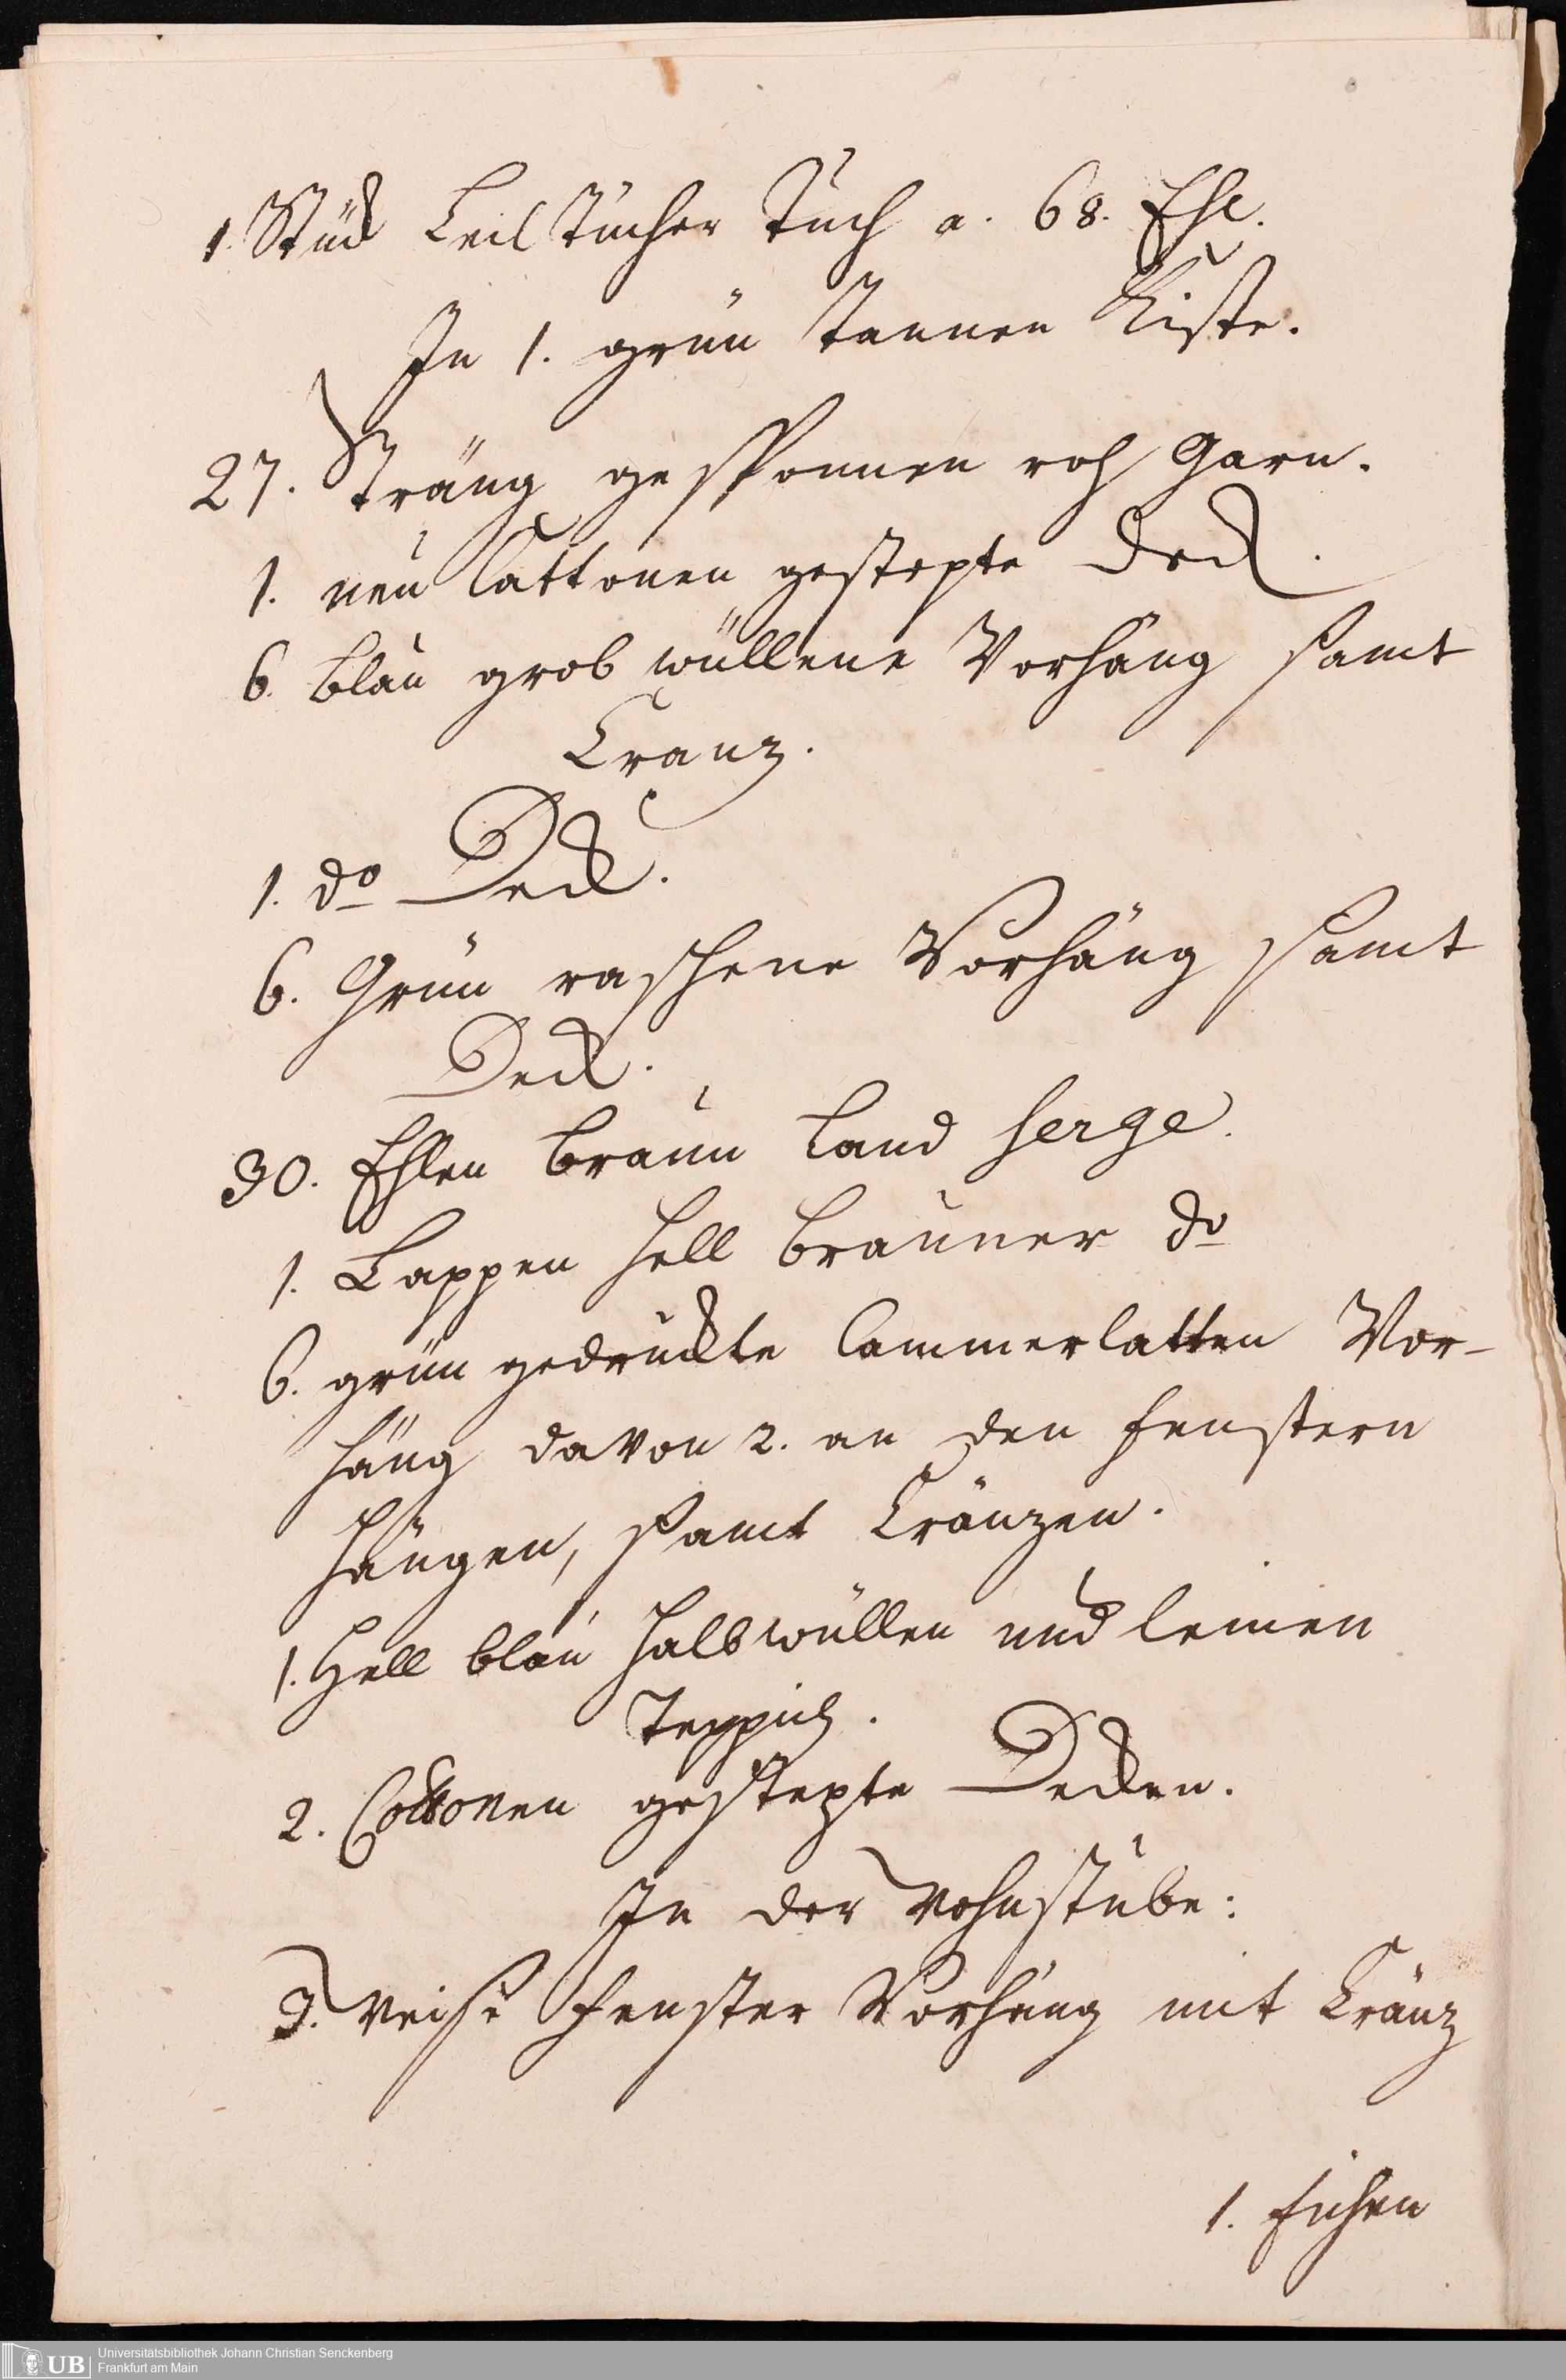 1. Stück Leil tücher Tuch a. 68. Ehl.
In 1. grün tannen Kiste.
27. Sträng gesponnen roh Garn.
1. neu Cattonen gestepte Deck.
6. blau grob wüllene Vorhäng samt
Cranz.
1. do Deck.
6. Grün raschene Vorhäng samt
Deck.
30. Ehlen braun Land serge.
1. Lappen hell brauner do
6. grün gedruckte Cammerlatten Vor-
häng davon 2. an den fenstern
hängen, samt Cränzen.
1. Hell blau halbwüllen und leinen
Teppich.
2. Cottonen gestepte Decken.
In der Wohnstube:
3. Weise Fenster Vorhäng mit Cränz
1. Eichen
UB
Universitätsbibliothek Johann Christian Senckenberg
Frankfurt am Main